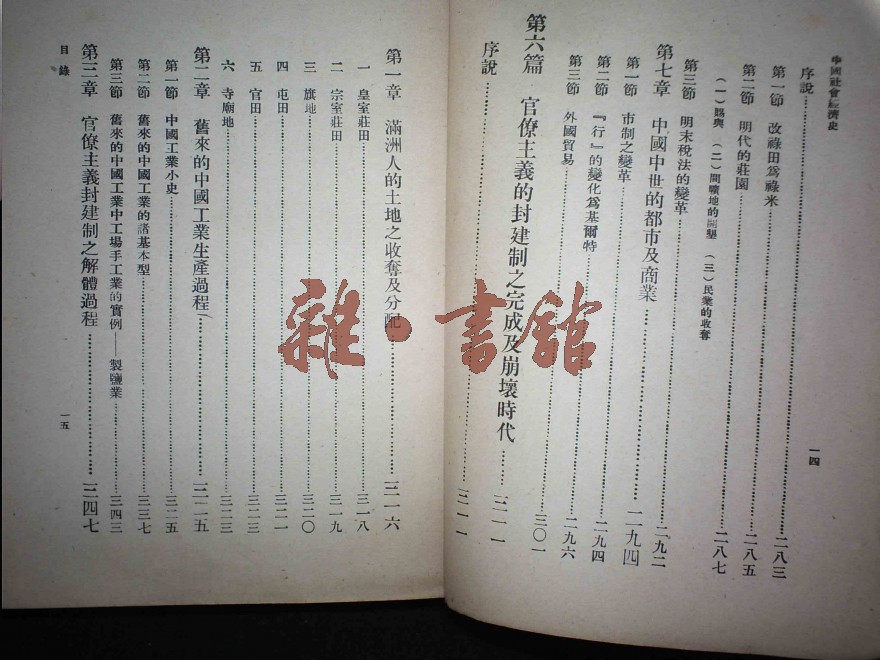 中國社會經濟史
序說……
第一節 改祿田爲祿米……二八三
第二節 明代的莊園……二八五
（一）賜與（二）間曠地的開墾（三）民衆的收奪……二八七
第三節 明末稅法的變革……二九二
第七章 中國中世的都市及商業……二九四
第一節 市制之變革……二九四
第二節 『行』的變化爲基爾特……二九六
第三節 外國貿易……三〇一
第六篇 官僚主義的封建制之完成及崩壞時代……三一一
序說……三一一
一四
第一章 滿洲人的土地之收奪及分配……三一六
一 皇室莊田……三一八
二 宗室莊田……三一九
三 旗地……三二〇
四 屯田……三二一
五 官田……三二三
六 寺廟地……三二三
第二章 舊來的中國工業生產過程……三二五
第一節 中國工業小史……三二五
第二節 舊來的中國工業的諸基本型……三三七
第三節 舊來的中國工業中工場手工業的實例——製鹽業……三四三
第三章 官僚主義封建制之解體過程……三四七
目錄
一五
雜·書館